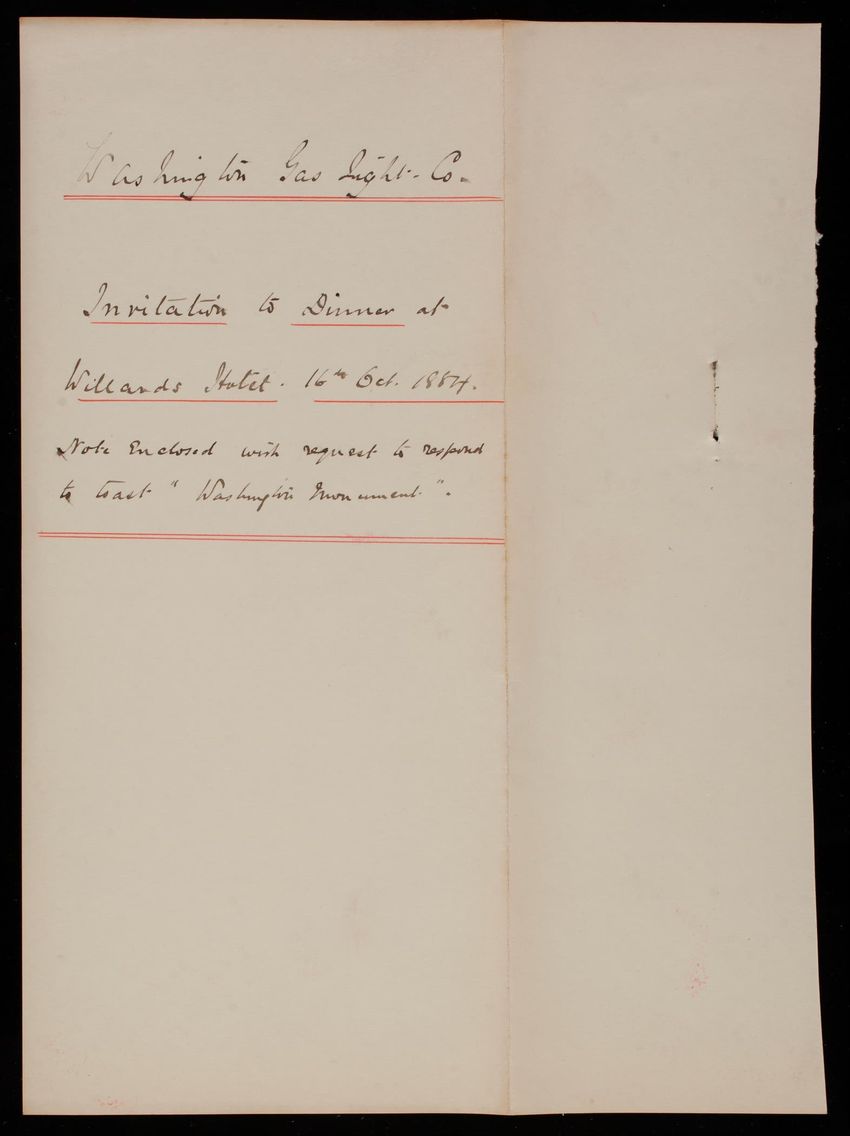 Washington Gas Light Co.
Invitation to Dinner at
Willards Hotel. 16th Oct. 1884.
Note Enclosed with request to respond
to toast "Washington Monument".